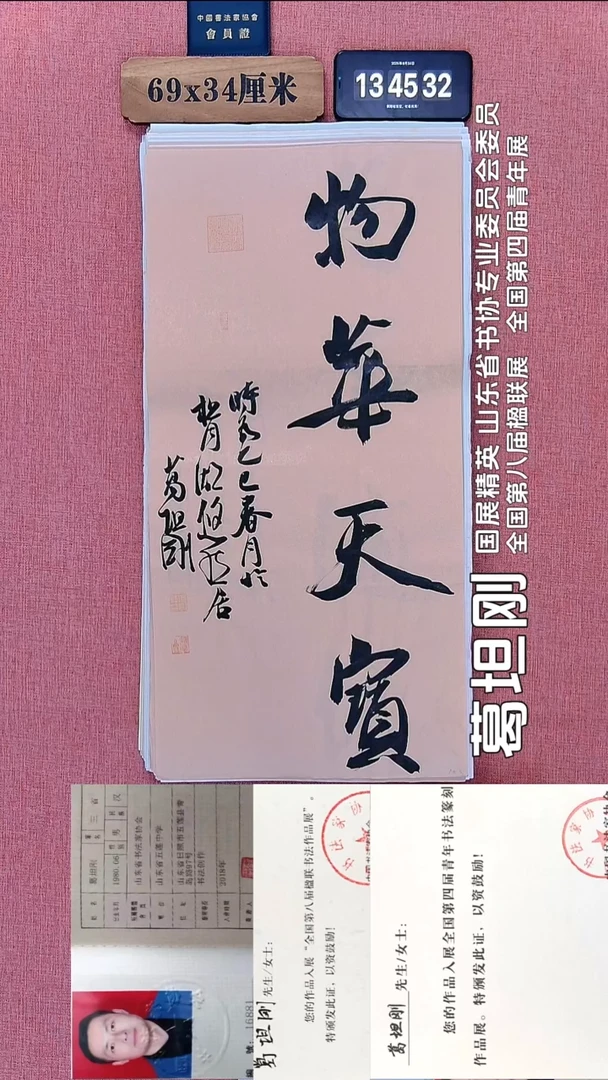 中國書法家協會
會員證
69x34厘米
13 45 32
物華天寶
時在乙巳春月於
葛坦剛
葛坦刚
国展精英 山东省书协专业委员会委员
全国第八届楹联展 全国第四届青年展
葛坦刚
1980.06
男
汉
山东省书法家协会
山东省五莲中学
书法创作
2018年
16881
葛坦刚 先生/女士:
您的作品入展“全国第八届楹联书法作品展”。
特颁发此证,以资鼓励!
葛坦刚 先生/女士:
您的作品入展全国第四届青年书法篆刻
作品展。特颁发此证,以资鼓励!